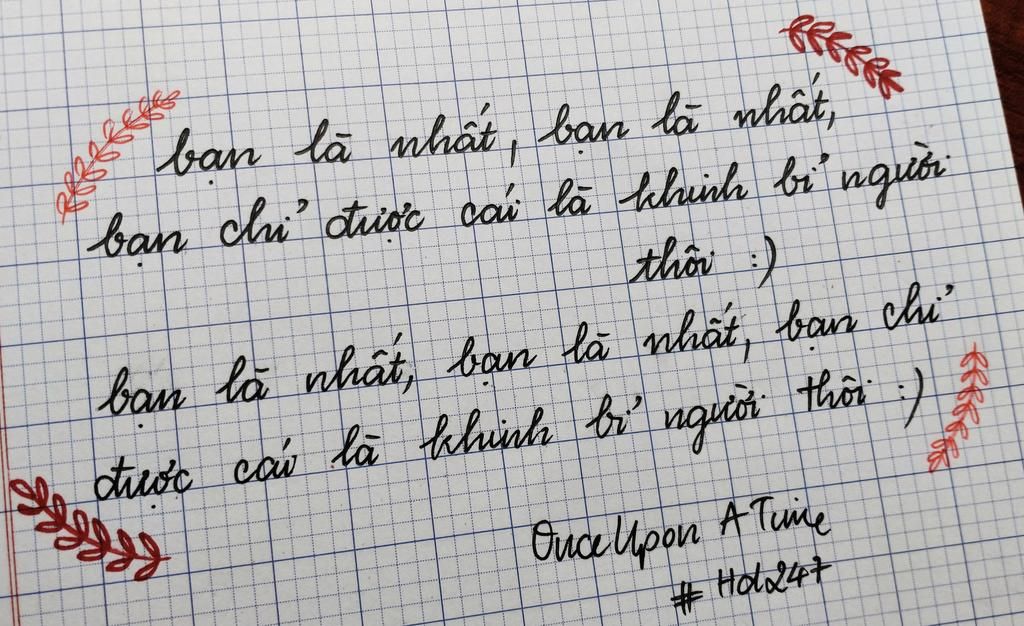 bạn là nhất, bạn là nhất,
bạn chỉ được cái là khinh bỉ người
thôi :)
bạn là nhất, bạn là nhất, bạn chỉ
được cái là khinh bỉ người thôi :)
Once Upon A Time
# Hol247